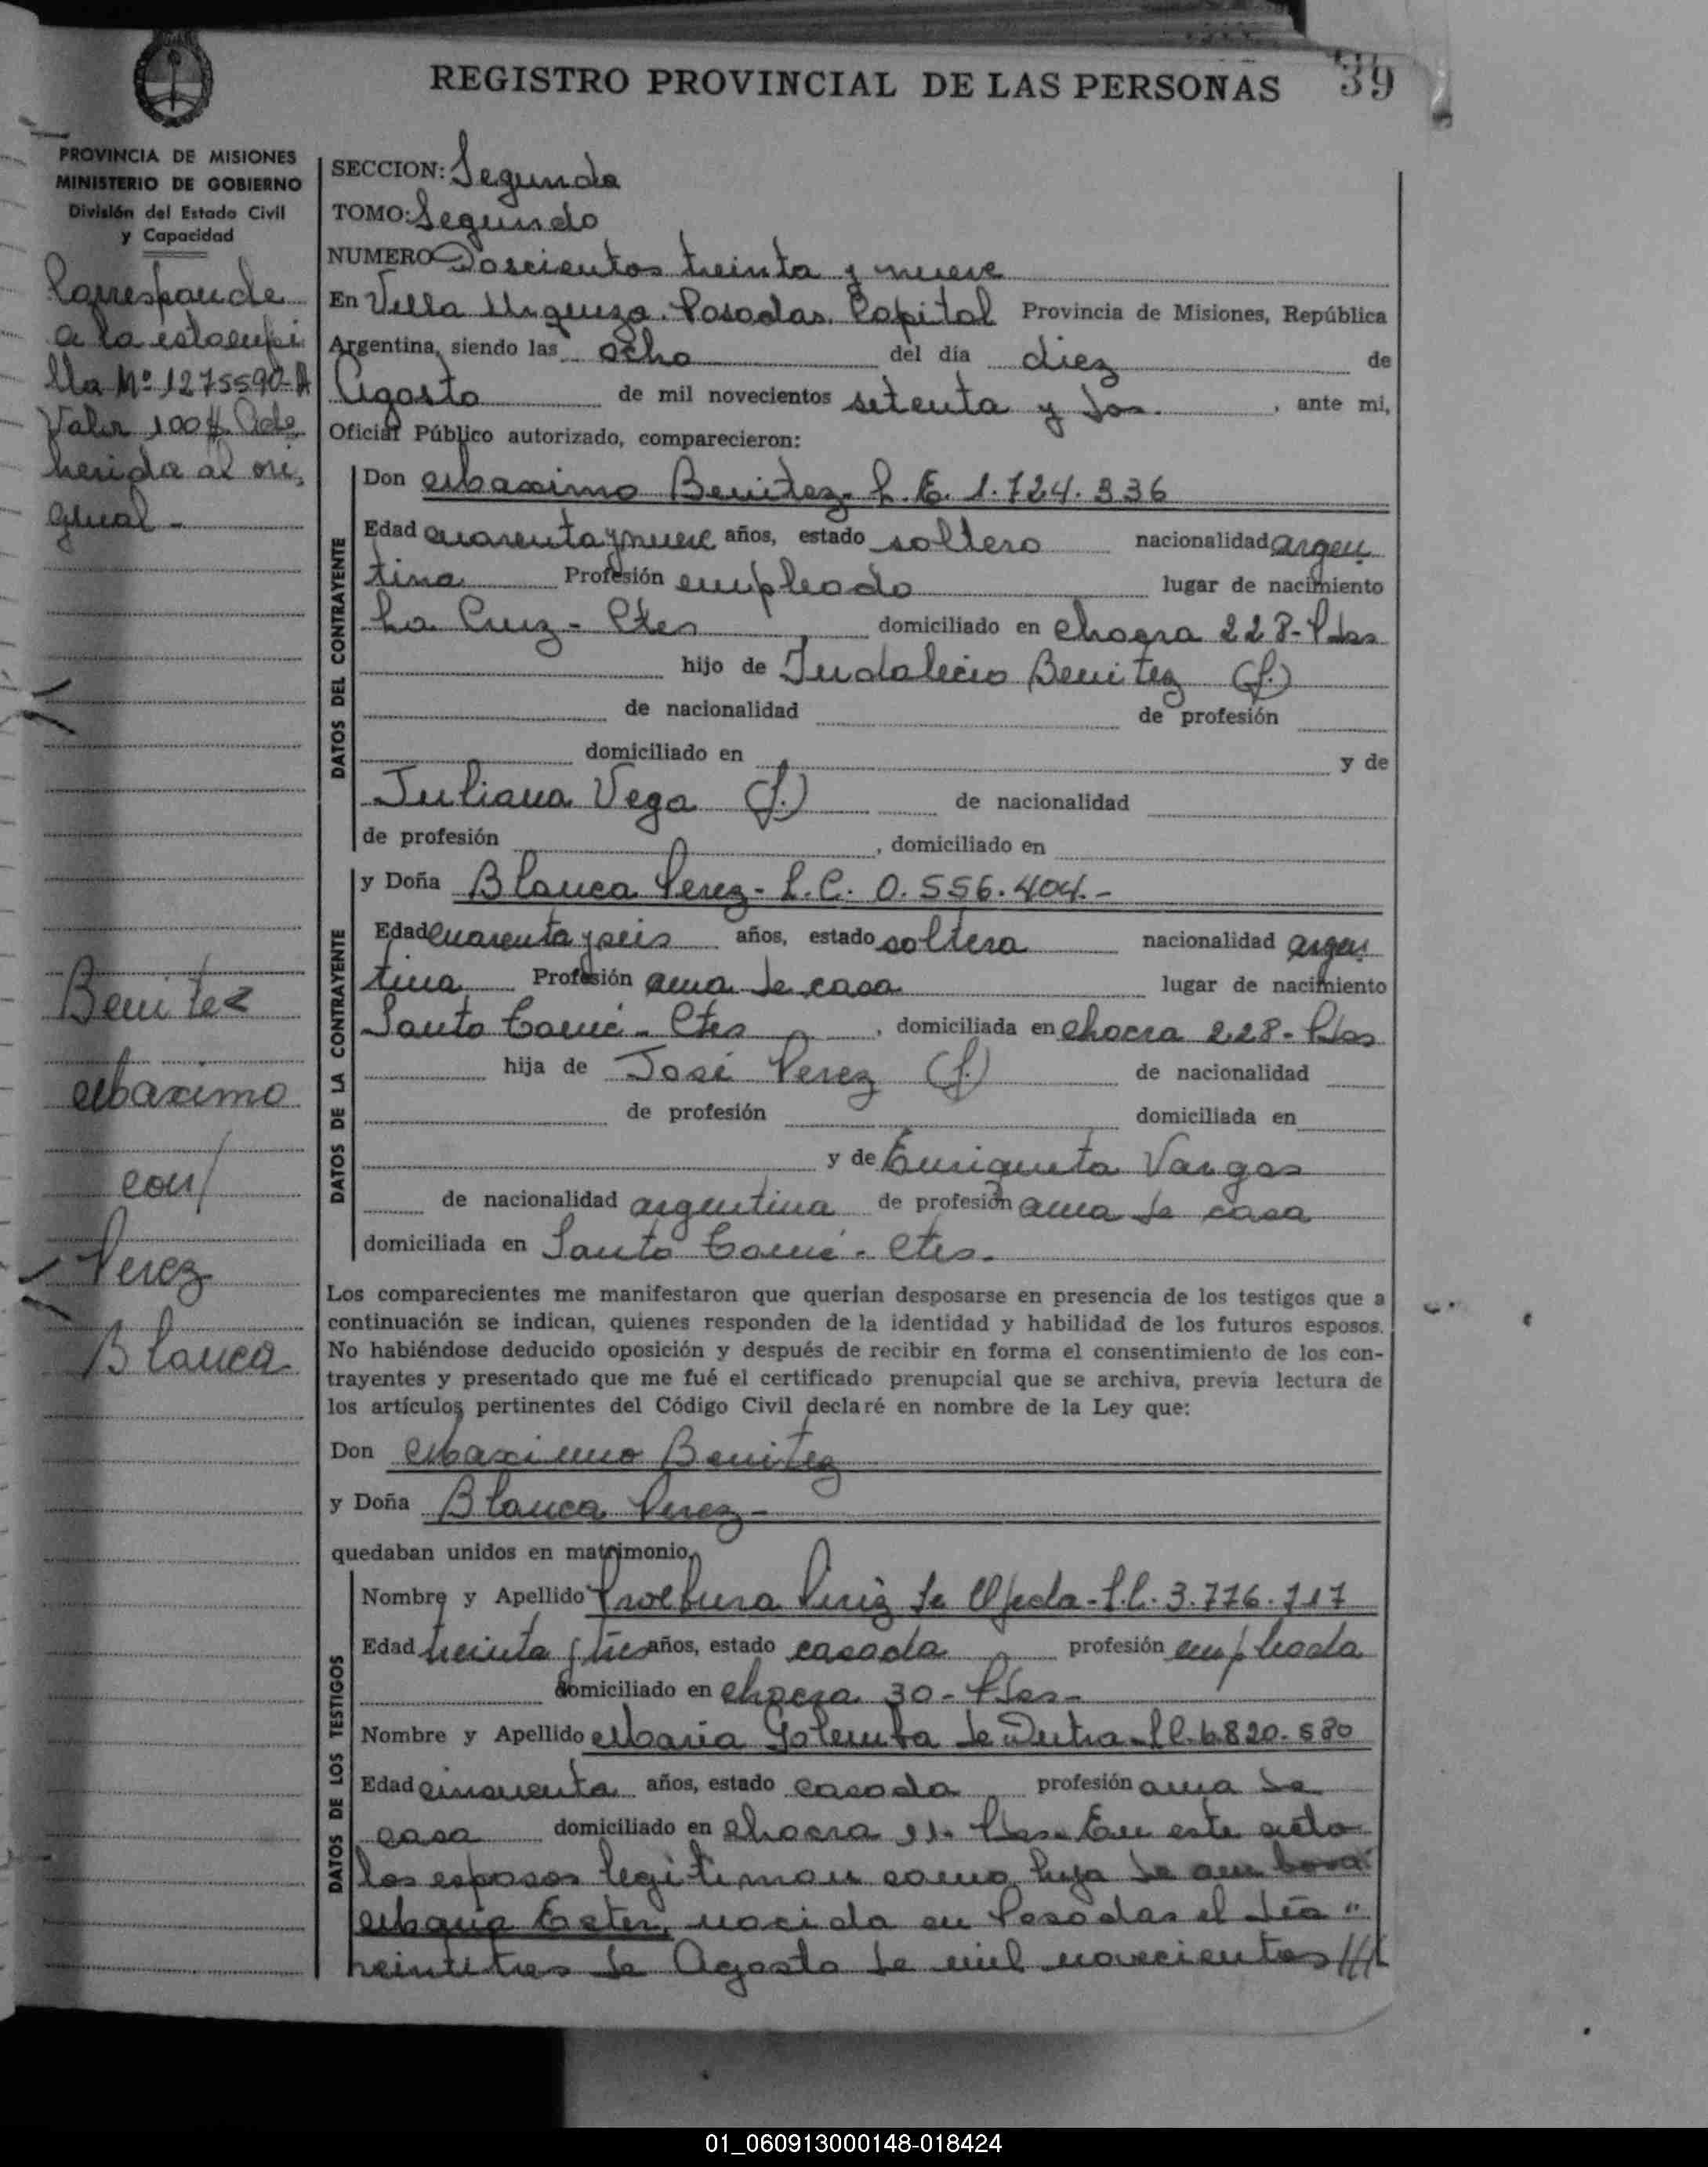 REGISTRO PROVINCIAL DE LAS PERSONAS 39
PROVINCIA DE MISIONES
MINISTERIO DE GOBIERNO
División del Estado Civil
y Capacidad
Corresponde
a la estampi
lla Nº 1275590-A
Valor 100 $ Ade
herida al ori,
ginal -
Benitez
Maximo
con/
Perez
Blanca
SECCION: Segunda
TOMO: Segundo
NUMERO Doscientos treinta y nueve
En Villa Urquiza. Posadas. Capital Provincia de Misiones, República
Argentina, siendo las ocho del día diez de
Agosto de mil novecientos setenta y dos. , ante mi,
Oficial Público autorizado, comparecieron:
DATOS DEL CONTRAYENTE
Don Maximo Benitez. L.E. 1.724.336
Edad cuarenta y nueve años, estado soltero nacionalidad argen
tina Profesión empleado lugar de nacimiento
La Cruz - Ctes domiciliado en chacra 228 - Pdas
hijo de Indalecio Benitez (f.)
de nacionalidad de profesión
domiciliado en y de
Juliana Vega (f.) de nacionalidad
de profesión , domiciliado en
DATOS DE LA CONTRAYENTE
y Doña Blanca Perez - L.C. 0.556.404.-
Edad cuarenta y seis años, estado soltera nacionalidad argen
tina Profesión ama de casa lugar de nacimiento
Santo Tomé - Ctes , domiciliada en chacra 228 - Pdas
hija de José Perez (f.) de nacionalidad
de profesión domiciliada en
y de Enriqueta Vargas
de nacionalidad argentina de profesión ama de casa
domiciliada en Santo Tomé - Ctes.
Los comparecientes me manifestaron que querian desposarse en presencia de los testigos que a
continuación se indican, quienes responden de la identidad y habilidad de los futuros esposos.
No habiéndose deducido oposición y después de recibir en forma el consentimiento de los con-
trayentes y presentado que me fué el certificado prenupcial que se archiva, previa lectura de
los artículos pertinentes del Código Civil declaré en nombre de la Ley que:
Don Maximo Benitez
y Doña Blanca Perez -
quedaban unidos en matrimonio,
DATOS DE LOS TESTIGOS
Nombre y Apellido de Ojeda - L.C. 3.776.717
Edad treinta y tres años, estado casada profesión empleada
domiciliado en chacra 30 - Pdas -
Nombre y Apellido Maria Golemba de Dutra - L.C. 6.820.580
Edad cincuenta años, estado casada profesión ama de
casa domiciliado en chacra 91. Pdas. En este acto
los esposos legitiman como hija de ambos a
Maria Ester, nacida en Posadas el día "
veintitres de Agosto de mil novecientos ////
01_060913000148-018424